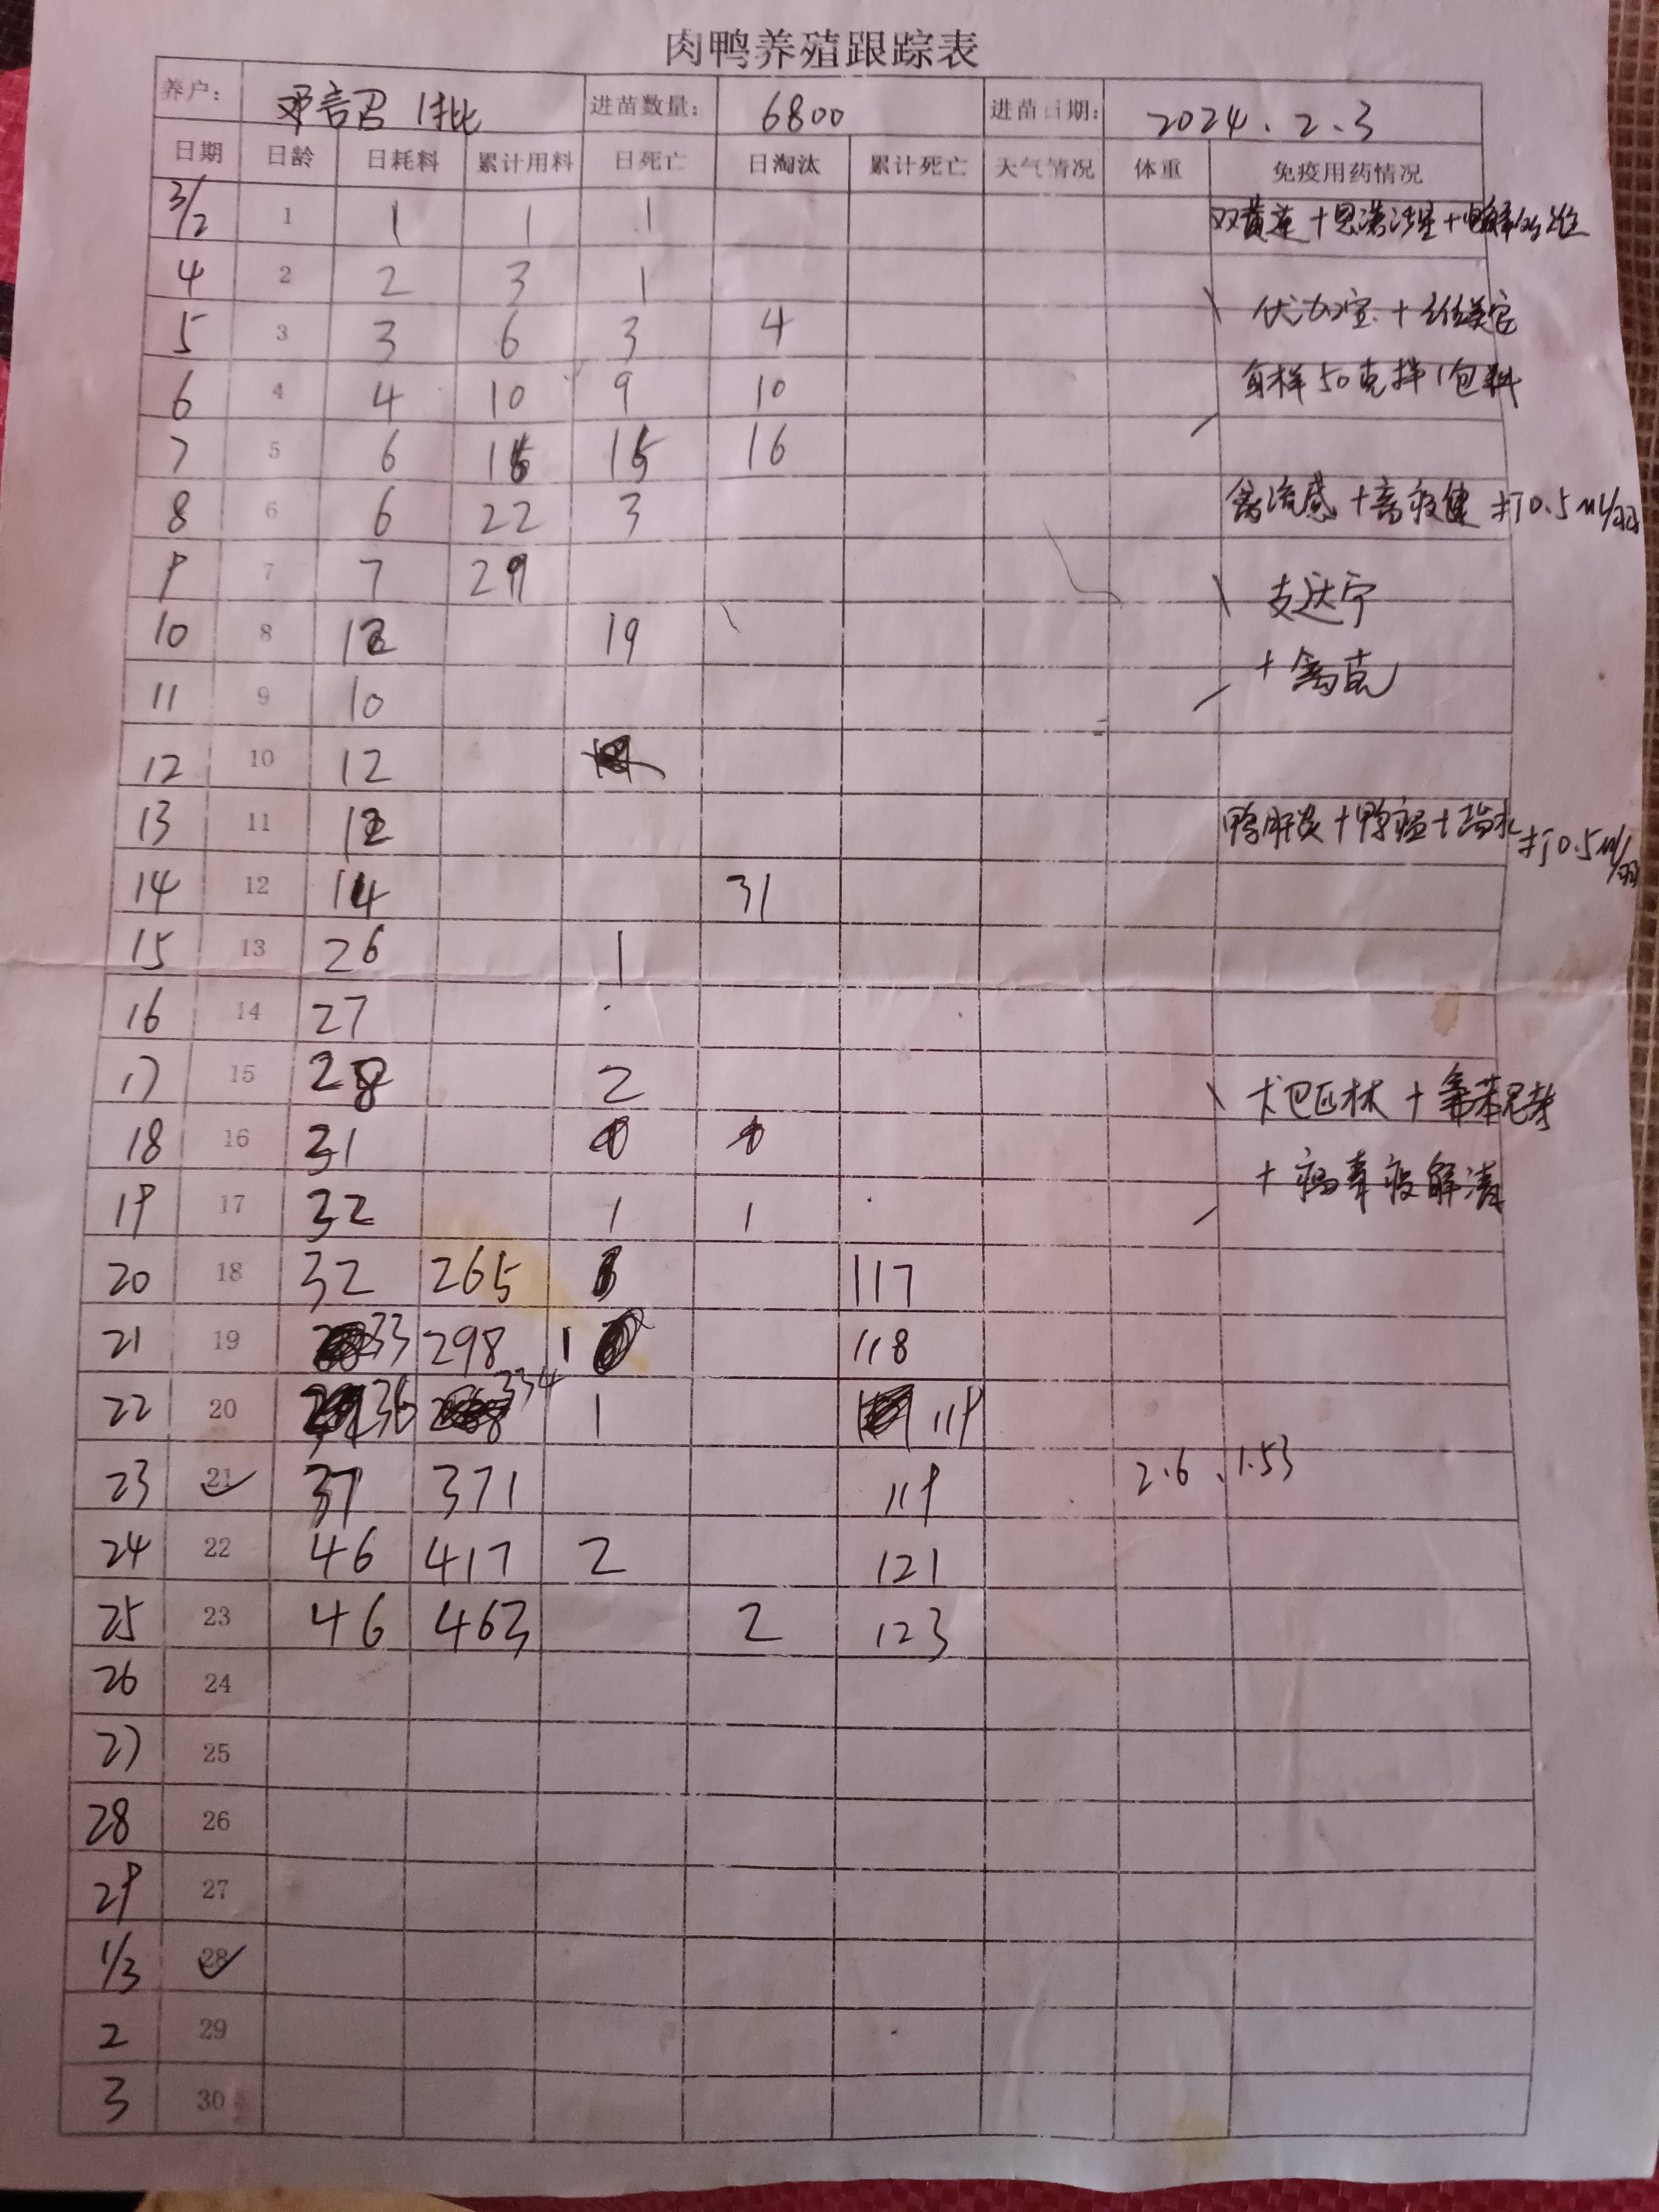 肉鸭养殖跟踪表
养户: 邓言召 1批 进苗数量: 6800 进苗日期: 2024.2.3
日期 日龄 日耗料 累计用料 日死亡 日淘汰 累计死亡 天气情况 体重 免疫用药情况
3/2 1 1 1 1 双黄连+恩诺沙星+电解多维
4 2 2 3 1
5 3 3 6 3 4 伏力宝+
6 4 4 10 9 10 每样50克拌1包料
7 5 6 16 15 16
8 6 6 22 3 禽流感+高效健 打0.5ml/羽
9 7 7 29 支达宁
10 8 12 19 +禽克
11 9 10
12 10 12
13 11 12 鸭肝炎+鸭瘟+ 打0.5ml/羽
14 12 14 31
15 13 26 1
16 14 27
17 15 28 2 卡巴匹林+氟苯尼考
18 16 31
19 17 32 1 1 +病毒疫解清
20 18 32 265 117
21 19 33 298 1 118
22 20 36 334 1 119
23 21 37 371 119 2.6、1.53
24 22 46 417 2 121
25 23 46 463 2 123
26 24
27 25
28 26
29 27
1/3 28
2 29
3 30